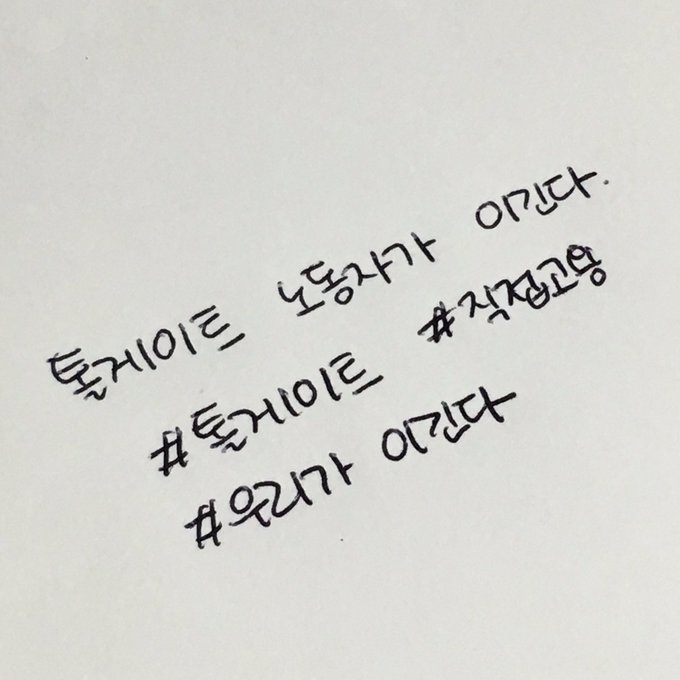 톨게이트 노동자가 이긴다.
#톨게이트 #직접고용
#우리가 이긴다